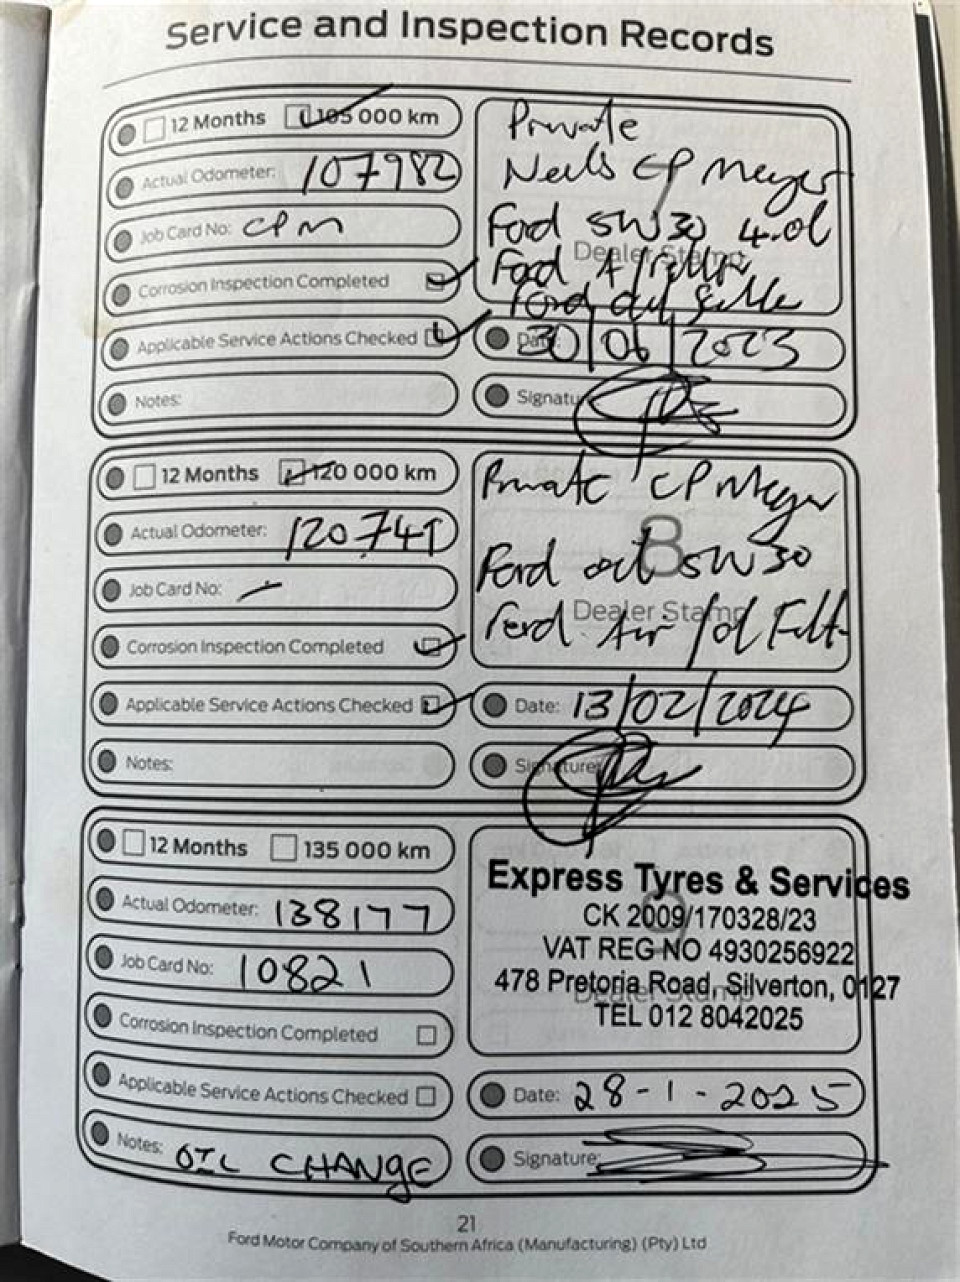 Service and Inspection Records
12 Months 105 000 km
Actual Odometer: 107982
Job Card No: CPM
Corrosion Inspection Completed
Applicable Service Actions Checked
Notes:
Private
CP Meyer
Ford 5W30 4.0l
Dealer Stamp
Ford A/Filter
Ford oil
Date: 30/06/2023
Signature
12 Months 120 000 km
Actual Odometer: 120741
Job Card No:
Corrosion Inspection Completed
Applicable Service Actions Checked
Notes:
Private CP Meyer
8
Ford oil 5W30
Dealer Stamp
Ford Air/oil Filt
Date: 13/02/2024
Signature:
12 Months 135 000 km
Actual Odometer: 138177
Job Card No: 10821
Corrosion Inspection Completed
Applicable Service Actions Checked
Notes: OIL CHANGE
Express Tyres & Services
CK 2009/170328/23
9
VAT REG NO 4930256922
478 Pretoria Road, Silverton, 0127
Dealer Stamp
TEL 012 8042025
Date: 28-1-2025
Signature:
21
Ford Motor Company of Southern Africa (Manufacturing) (Pty) Ltd